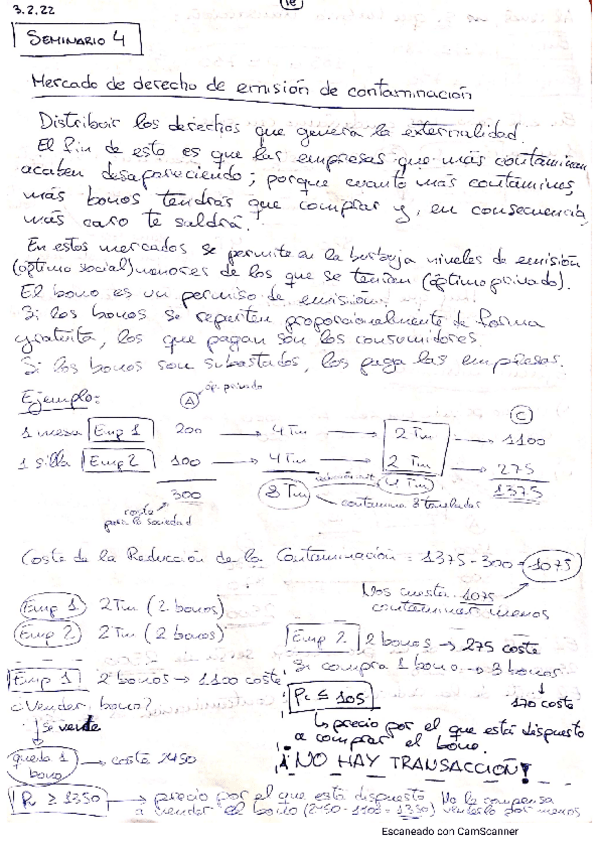 3.2.22
SEMINARIO 4
Mercado de derecho de emisión de contaminación
Distribuir los derechos que genera la externalidad
El fin de esto es que las empresas que más contaminan
acaben desapareciendo; porque cuanto más contamines,
más bonos tendrás que comprar y, en consecuencia,
más caro te saldrá.
En estos mercados se permite en la burbuja niveles de emisión
(óptimo social) menores de los que se tenían (óptimo privado).
El bono es un permiso de emisión.
Si los bonos se reparten proporcionalmente de forma
gratuita, los que pagan son los consumidores.
Si los bonos son subastados, los paga las empresas.
Ejemplo: A óp. privado C
1 mesa Emp 1 200 → 4 Tm → 2 Tm → 1100
1 silla Emp 2 100 → 4 Tm → 2 Tm → 275
300 8 Tm 4 Tm 1375
coste para la sociedad
contamina 8 toneladas
Coste de la Reducción de la Contaminación = 1375 - 300 = 1075
Nos cuesta 1075
contaminar menos
Emp 1 2 Tm (2 bonos)
Emp 2 2 Tm (2 bonos)
Emp 1 2 bonos → 1100 coste
¿Vender bono?
↓ se vende
queda 1 bono → coste 2450
Pv ≥ 1350 → precio por el que está dispuesto
a vender el bono (2450 - 1100 = 1350)
No le compensa
venderlo por menos
Emp 2 2 bonos → 275 coste
Si compra 1 bono → 3 bonos
↓
170 coste
Pc ≤ 105
↳ precio por el que está dispuesto
a comprar el bono.
¡NO HAY TRANSACCIÓN!
Escaneado con CamScanner